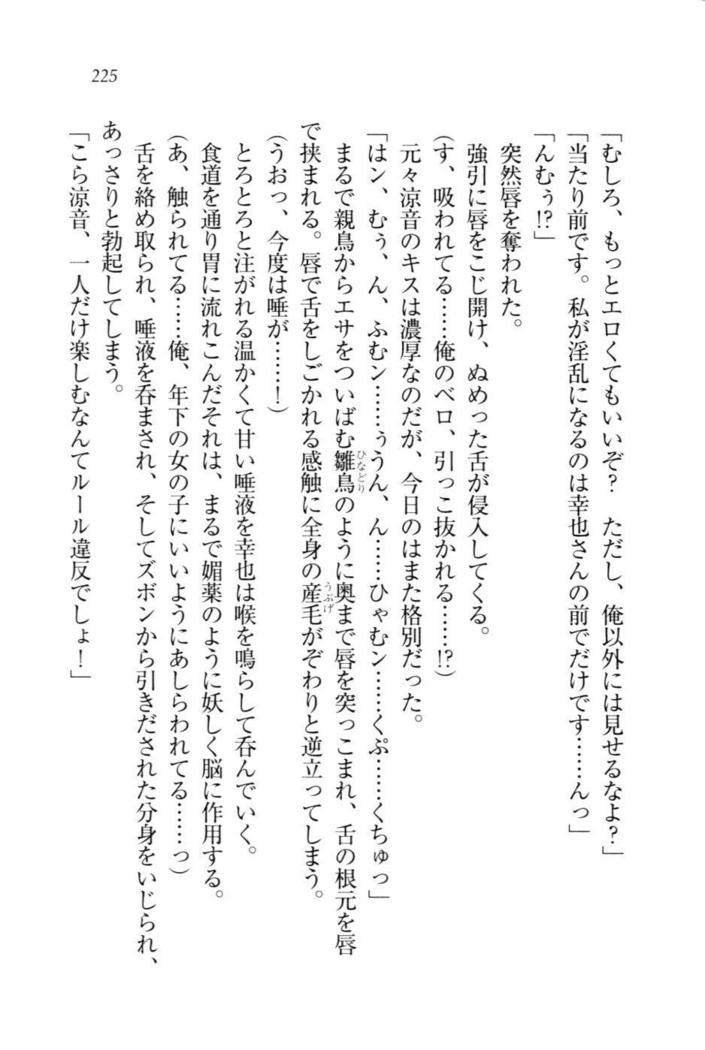 225
「むしろ、もっとエロくてもいいぞ？　ただし、俺以外には見せるなよ？」
「当たり前です。私が淫乱になるのは幸也さんの前でだけです……んっ」
「んむぅ!?」
突然唇を奪われた。
強引に唇をこじ開け、ぬめった舌が侵入してくる。
(す、吸われてる……俺のベロ、引っこ抜かれる……!?)
元々涼音のキスは濃厚なのだが、今日のはまた格別だった。
「はン、むぅ、ん、ふむン……ぅうん、ん……ひゃむン……くぷ……くちゅっ」
まるで親鳥からエサをついばむ雛鳥ひなどりのように奥まで唇を突っこまれ、舌の根元を唇
で挟まれる。唇で舌をしごかれる感触に全身の産毛うぶげがぞわりと逆立ってしまう。
(うおっ、今度は唾が……！)
とろとろと注がれる温かくて甘い唾液を幸也は喉を鳴らして呑んでいく。
食道を通り胃に流れこんだそれは、まるで媚薬のように妖しく脳に作用する。
(あ、触られてる……俺、年下の女の子にいいようにあしらわれてる……っ)
舌を絡め取られ、唾液を呑まされ、そしてズボンから引きだされた分身をいじられ、
あっさりと勃起してしまう。
「こら涼音、一人だけ楽しむなんてルール違反でしょ！」